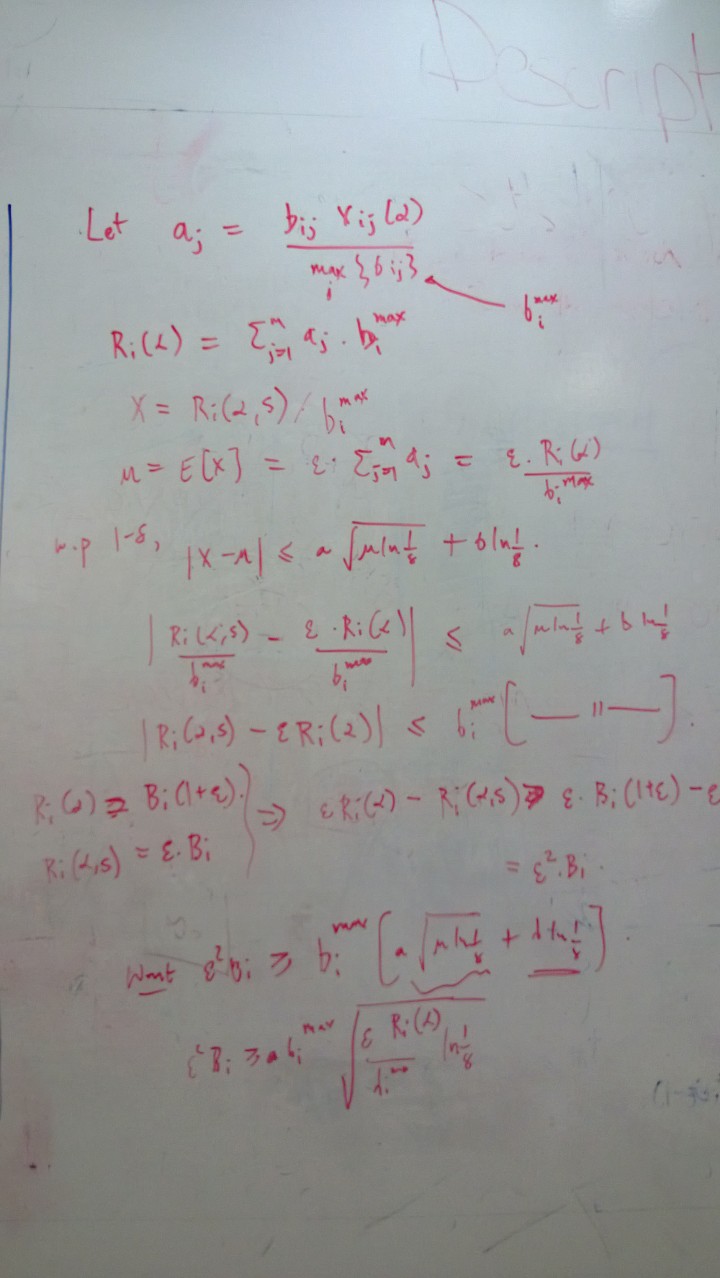 Descript
Let a_j = b_ij x_ij(α) / max_i {b_ij}
b_i^max
R_i(α) = Σ_{j=1}^m a_j · b_i^max
X = R_i(α,S) / b_i^max
μ = E[X] = ε · Σ_{j=1}^m a_j = ε · R_i(α) / b_i^max
w.p 1-δ, |X-μ| ≤ a √(μ ln 1/δ) + b ln 1/δ .
| R_i(α,S) / b_i^max - ε · R_i(α) / b_i^max | ≤ a √(μ ln 1/δ) + b ln 1/δ
|R_i(α,S) - εR_i(α)| ≤ b_i^max [ — 〃 — ] .
R_i(α) ≥ B_i(1+ε). } ⇒ εR_i(α) - R_i(α,S) ≥ ε · B_i(1+ε) - ε
R_i(α,S) = ε · B_i
= ε² · B_i .
Want ε²B_i ≥ b_i^max [ a √(μ ln 1/δ) + b ln 1/δ ] .
ε²B_i ≥ a b_i^max √( ε R_i(α) / b_i^max ln 1/δ )